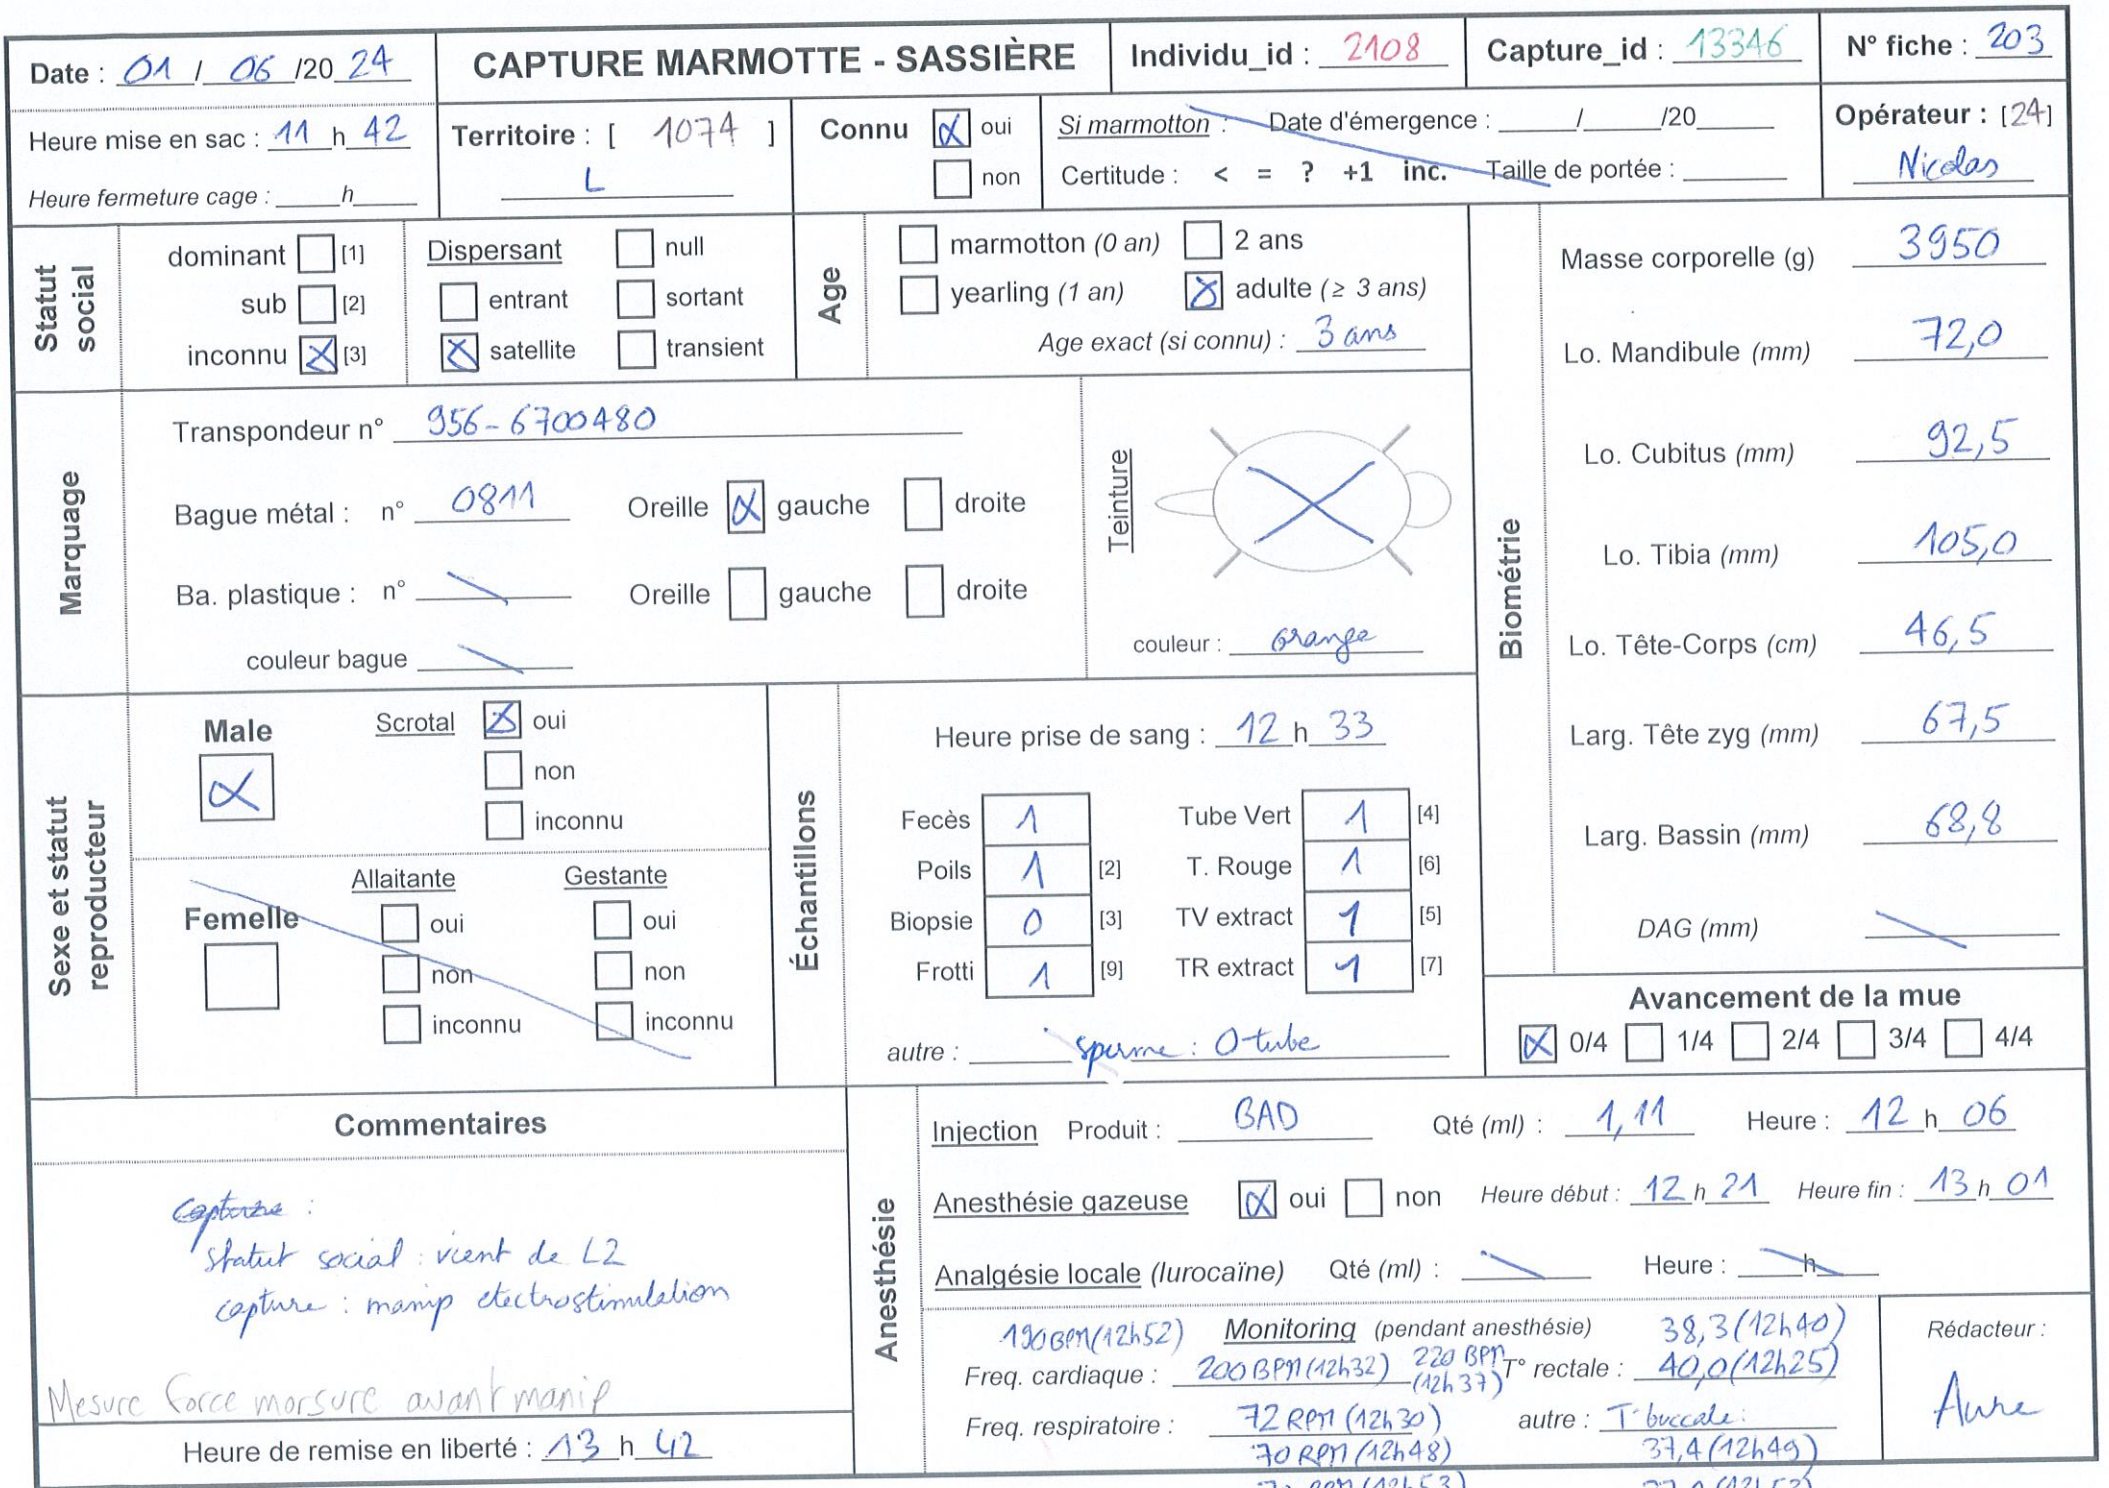 Date : 01 / 06 /20 24
CAPTURE MARMOTTE - SASSIÈRE
Individu_id : 2108
Capture_id : 13346
N° fiche : 203
Heure mise en sac : 11 h 42
Heure fermeture cage : ____h____
Territoire : [ 1074 ]
L
Connu
oui
non
Si marmotton : Date d'émergence : ____/____/20____
Certitude : < = ? +1 inc. Taille de portée : ____
Opérateur : [24]
Nicolas
Statut social
dominant [1]
sub [2]
inconnu [3]
Dispersant
null
entrant
sortant
satellite
transient
Age
marmotton (0 an)
2 ans
yearling (1 an)
adulte (≥ 3 ans)
Age exact (si connu) : 3 ans
Marquage
Transpondeur n° 956-6700480
Bague métal : n° 0811 Oreille gauche droite
Ba. plastique : n° Oreille gauche droite
couleur bague
Teinture
couleur : orange
Biométrie
Masse corporelle (g) 3950
Lo. Mandibule (mm) 72,0
Lo. Cubitus (mm) 92,5
Lo. Tibia (mm) 105,0
Lo. Tête-Corps (cm) 46,5
Larg. Tête zyg (mm) 67,5
Larg. Bassin (mm) 68,8
DAG (mm)
Avancement de la mue
0/4 1/4 2/4 3/4 4/4
Sexe et statut reproducteur
Male
Scrotal oui
non
inconnu
Femelle
Allaitante
oui
non
inconnu
Gestante
oui
non
inconnu
Échantillons
Heure prise de sang : 12 h 33
Fecès 1 Tube Vert 1 [4]
Poils 1 [2] T. Rouge 1 [6]
Biopsie 0 [3] TV extract 1 [5]
Frotti 1 [9] TR extract 1 [7]
autre : sperme : 0 tube
Commentaires
capture :
statut social : vient de L2
capture : manip electrostimulation
Mesure force morsure avant manip
Heure de remise en liberté : 13 h 42
Anesthésie
Injection Produit : BAD Qté (ml) : 1,11 Heure : 12 h 06
Anesthésie gazeuse oui non Heure début : 12 h 21 Heure fin : 13 h 01
Analgésie locale (lurocaïne) Qté (ml) : Heure : h
190 BPM (12h52) Monitoring (pendant anesthésie) 38,3 (12h40)
Freq. cardiaque : 200 BPM (12h32) 220 BPM (12h37) T° rectale : 40,0 (12h25)
Freq. respiratoire : 72 RPM (12h30) autre : T° buccale :
70 RPM (12h48) 37,4 (12h49)
Rédacteur :
Aure